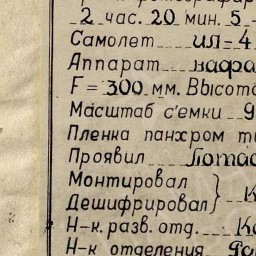 2 час. 20 мин. 5
Самолет ил-4
Аппарат
F = 300 мм. Высота
Масштаб с'емки 9
Пленка панхром ти
Проявил Потас
Монтировал
Дешифрировал } К
Н-к. разв. отд. Ка
Н-к отделения